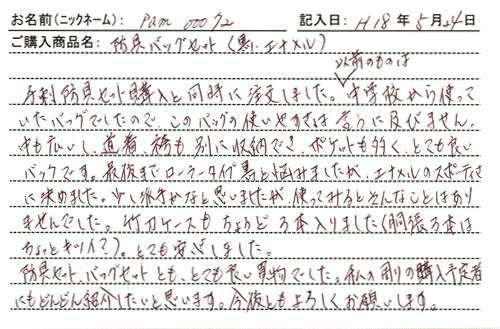 お名前(ニックネーム): Pam 000 92 記入日: H18年5月24日
ご購入商品名: 防具バッグセット(黒、エナメル)
以前のものは
手刺防具セット購入と同時に注文しました。中学校から使って
いたバッグでしたので、このバッグの使いやすさは言うに及びません。
中も広いし、道着、袴も別に収納でき、ポケットも多く、とても良い
バッグです。最後までローラータイプ黒と悩みましたが、エナメルのスポーティさ
に決めました。少し派手かなと思いましたが、使ってみるとそんなことはあり
ませんでした。竹刀ケースもちょうど3本入りました(胴張3本は
ちょっとキツイ?)。とても安心しました。
防具セット、バッグセットとも、とても良い買物でした。私の周りの購入予定者
にもどんどん紹介したいと思います。今後ともよろしくお願いします。